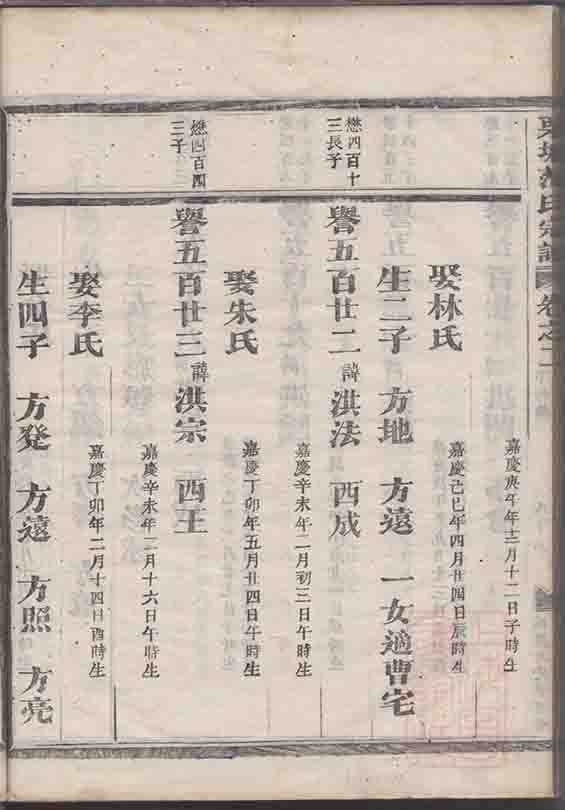 氏宗譜 卷之二
嘉慶庚午年十二月十二日子時生
娶林氏
嘉慶己巳年四月廿四日辰時生
生二子 方地 方遠 一女適曹宅
懋四百十三長子
譽五百廿二 諱洪法 西成
嘉慶辛未年二月初三日午時生
娶朱氏
嘉慶丁卯年五月廿四日午時生
懋四百四三子
譽五百廿三 諱洪宗 西王
嘉慶辛未年二月十六日午時生
娶李氏
嘉慶丁卯年二月十四日酉時生
生四子 方発 方遠 方照 方亮